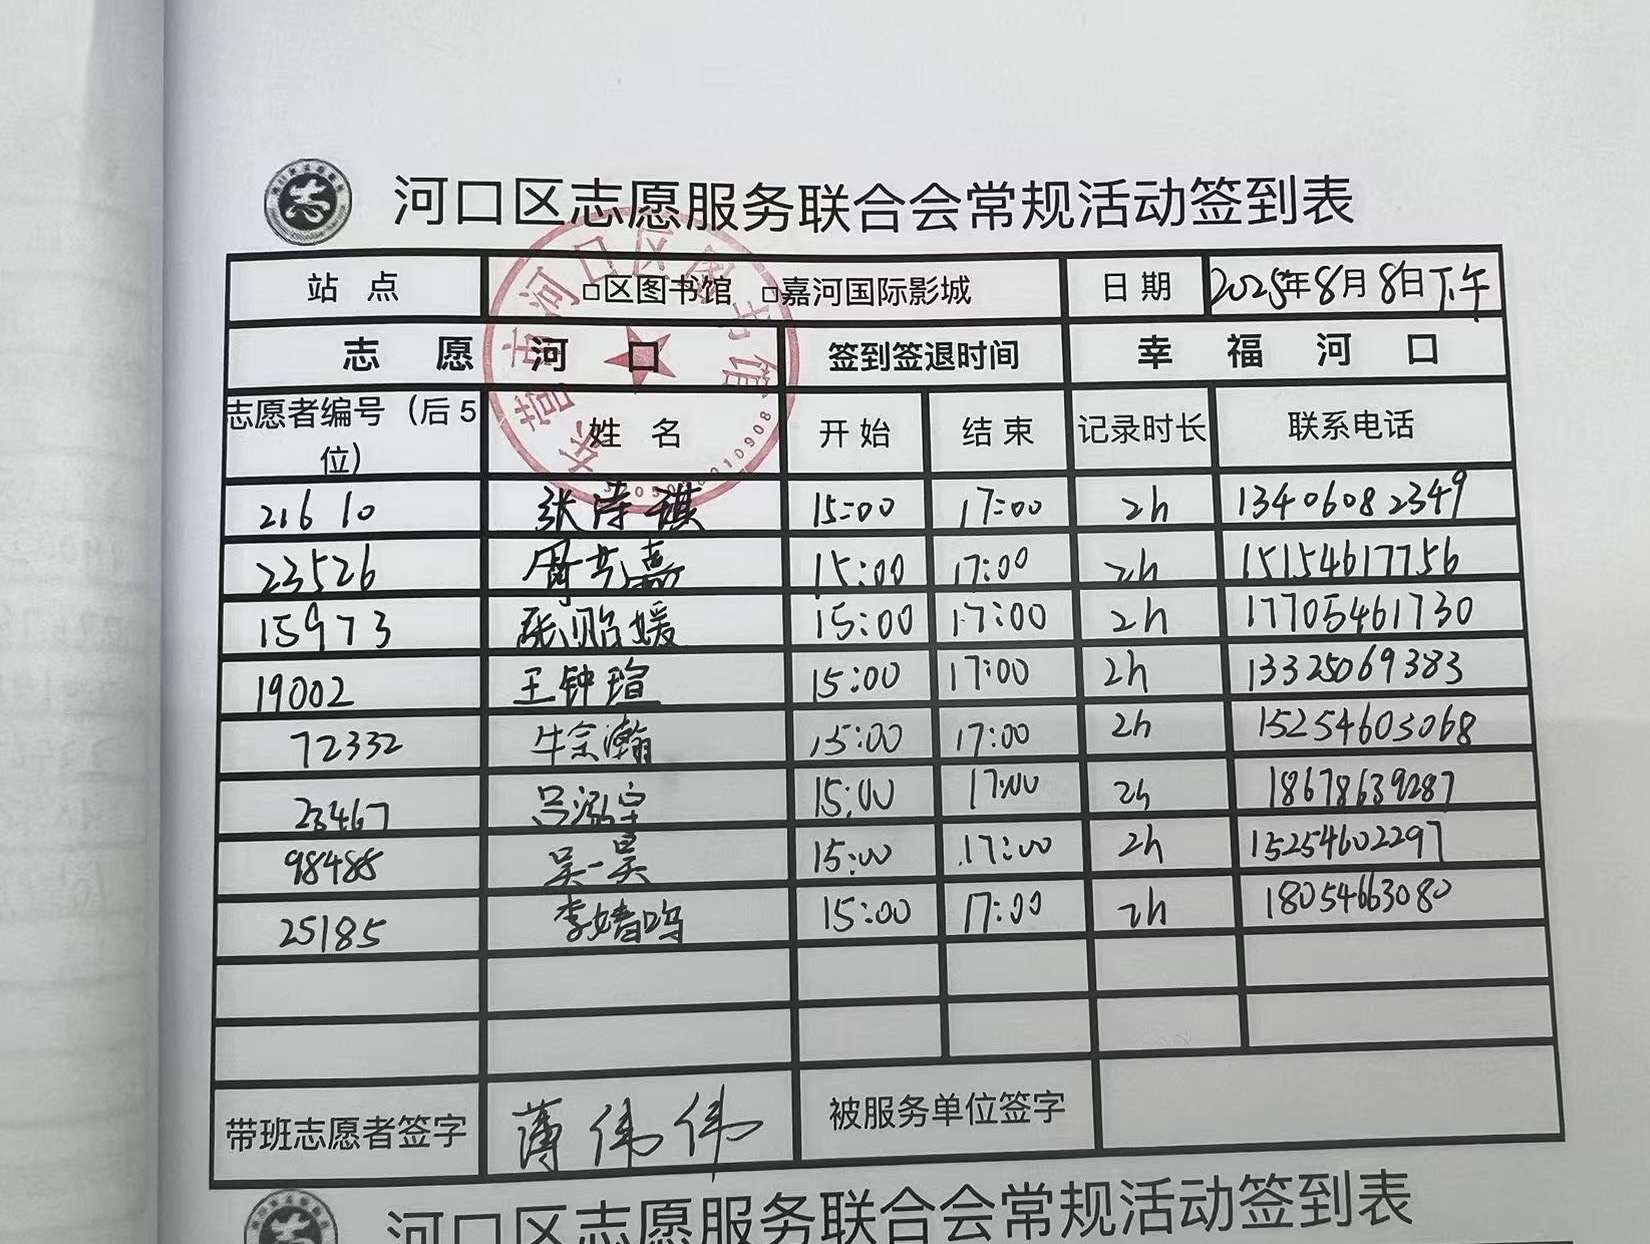 河口区志愿服务联合会常规活动签到表
站 点 □区图书馆 □嘉河国际影城 日 期 2025年8月8日下午
志 愿 河 口 签到签退时间 幸 福 河 口
志愿者编号（后5位） 姓 名 开 始 结 束 记录时长 联系电话
东营市河口区图书馆
21610 张诗琪 15:00 17:00 2h 13406082349
23526 15:00 17:00 2h 15154617756
15973 张贻媛 15:00 17:00 2h 17705461730
19002 王钟瑄 15:00 17:00 2h 13325069383
72332 牛宗瀚 15:00 17:00 2h 15254603068
23467 吕泓宇 15:00 17:00 2h 18678639287
98488 吴一昊 15:00 17:00 2h 15254602297
25185 李婧鸣 15:00 17:00 2h 18054663080
带班志愿者签字 薄伟伟 被服务单位签字
河口区志愿服务联合会常规活动签到表